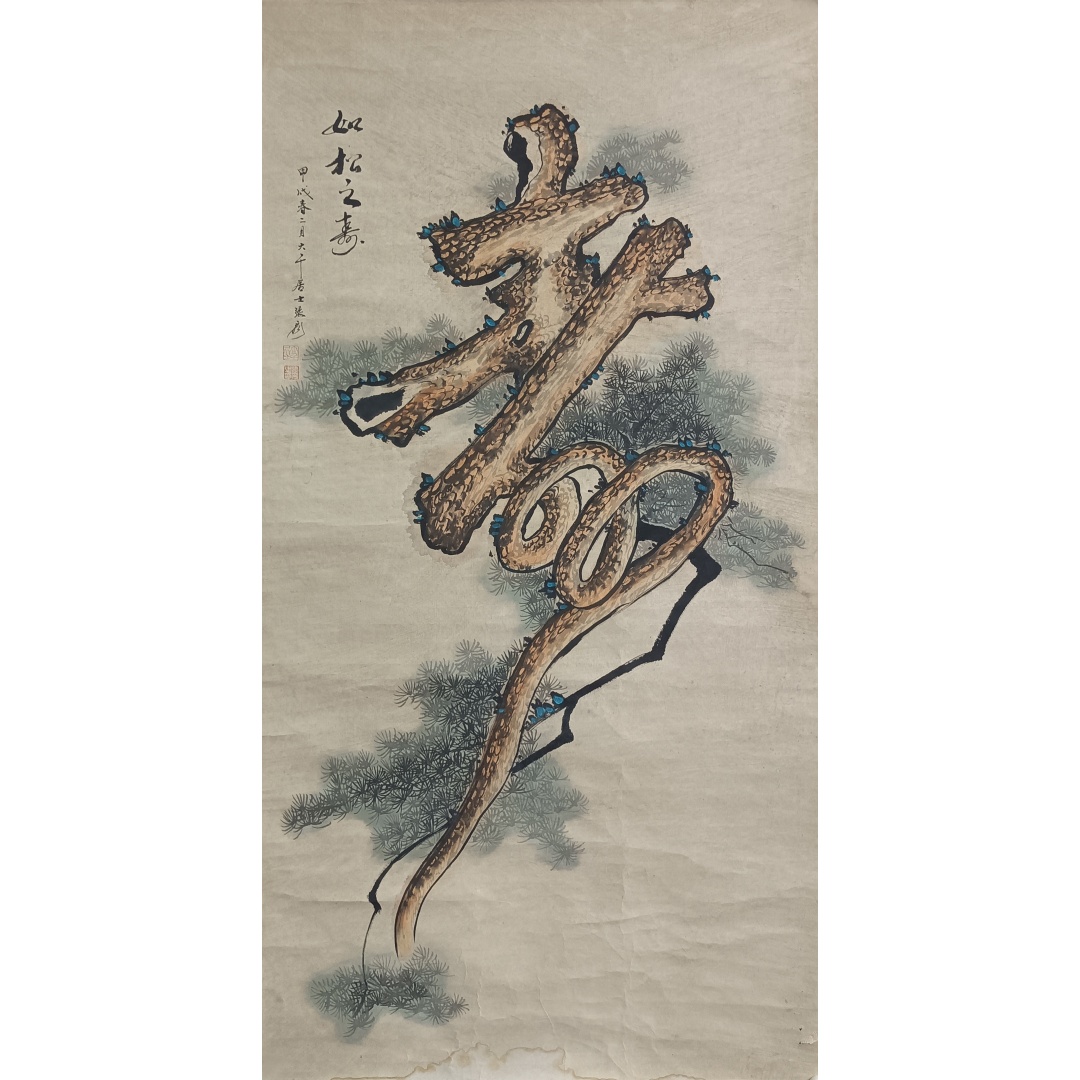 寿
如松之寿
甲戌春二月大千居士張爰